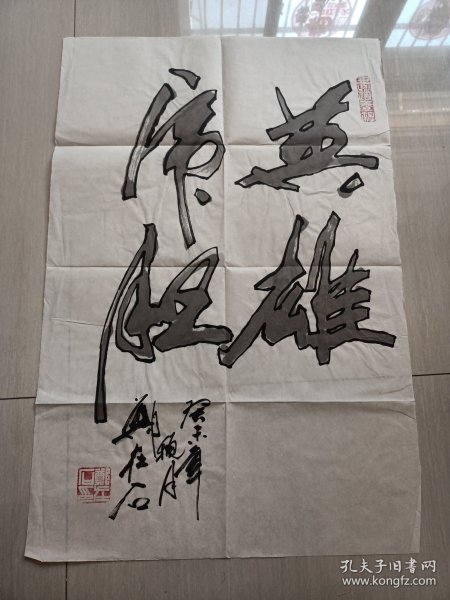 英雄
虎胆
癸未年
郑在石
孔夫子旧书网
www.kongfz.com